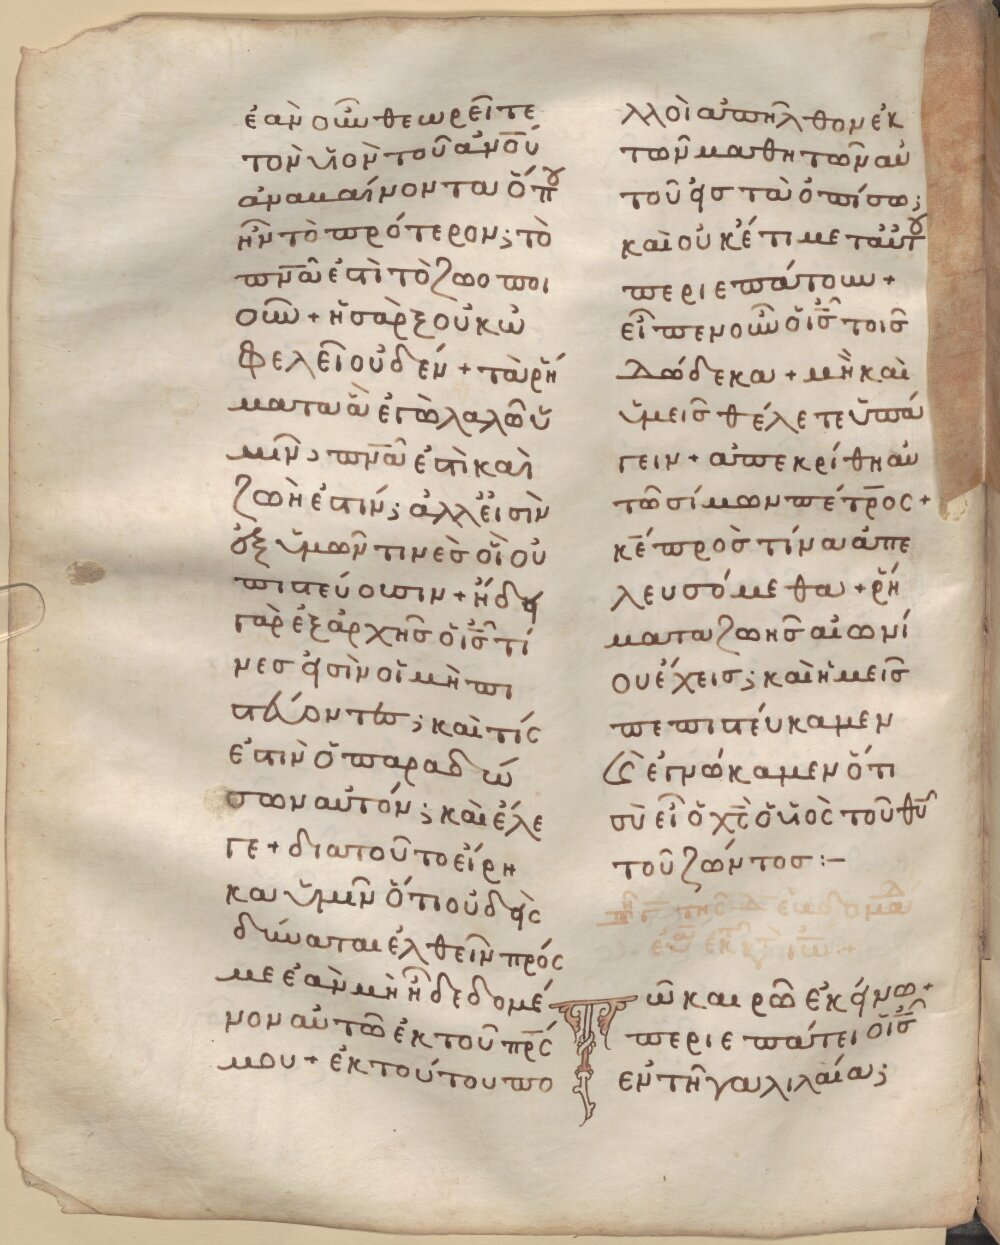 ἐὰν οὖν θεωρεῖτε
τὸν υἱὸν τοῦ ἀν̅ο̅υ
ἀναβαίνοντα ὅπου
ἦν τὸ πρότερον; τὸ
πν̅α̅ ἐστὶ τὸ ζωοποι
οῦν + ἡ σὰρξ οὐκ ὠ
φελεῖ οὐδέν + τὰ ῥή
ματα ἃ ἐγὼ λαλῶ ὑ
μῖν, πν̅α̅ ἐστὶ καὶ
ζωὴ ἐστίν; ἀλλ' εἰσὶν
ἐξ ὑμῶν τινὲς οἳ οὐ
πιστεύουσιν + ἤδει
γὰρ ἐξ ἀρχῆς ὁ ις̅ τί
νες εἰσὶν οἱ μὴ πι
στεύοντες; καὶ τίς
ἐστὶν ὁ παραδώ
σων αὐτόν; καὶ ἔλε
γε + διατοῦτο εἴρη
κα ὑμῖν ὅτι οὐδεὶς
δύναται ἐλθεῖν πρός
με ἐὰν μὴ ᾖ δεδομέ
νον αὐτῶ ἐκ τοῦ πρ̅ς
μου + ἐκ τούτου πο
λλοὶ ἀπῆλθον ἐκ
τῶν μαθητῶν αὐ
τοῦ εἰς τὰ ὀπίσω;
καὶ οὐκέτι μετ' αὐτοῦ
περιεπάτουν +
εἶπεν οὖν ὁ ις̅ τοῖς
δώδεκα + μὴ καὶ
ὑμεῖς θέλετε ὑπά
γειν + ἀπεκρίθη αὐ
τῶ σίμων πέτρος +
κ̅ε̅ πρὸς τίνα ἀπε
λευσόμεθα + ῥή
ματα ζωῆς αἰωνί
ου ἔχεις; καὶ ἡμεῖς
πεπιστεύκαμεν
καὶ ἐγνώκαμεν ὅτι
σὺ εἶ ὁ χς̅ ὁ υἱὸς τοῦ θ̅υ̅
τοῦ ζῶντος :–
τῆς δ ἑβδομάδ
ἐκ τ ἰω +
Τῶ καιρῶ ἐκείνω +
περιεπάτει ὁ ις̅
ἐν τῆ γαλιλαία;